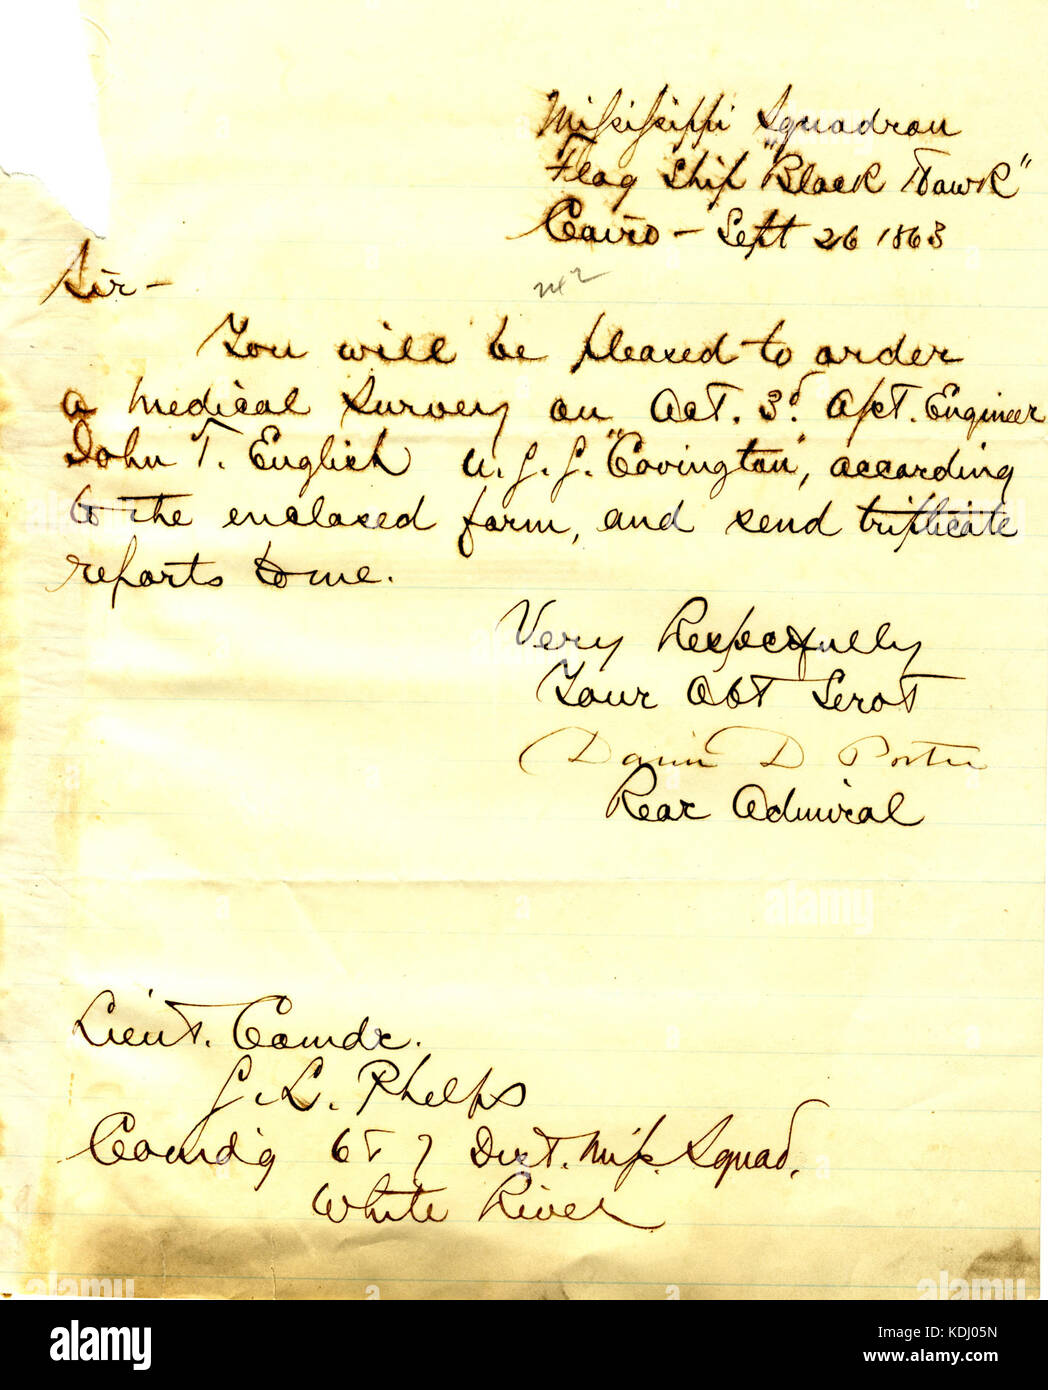 Mississippi Squadron
Flag Ship "Black Hawk"
Cairo - Sept 26 1863
Sir -
You will be pleased to order
a medical survey on Act. 3d. Asst. Engineer
John T. English U.S.S. "Covington", according
to the enclosed form, and send triplicate
reports to me.
Very Respectfully
Your Obt Servt
David D Porter
Rear Admiral
Lieut. Comdr.
S. L. Phelps
Comd'g 6 & 7 Dist. Miss. Squad.
White River
alamy
Image ID: KDJ05N
www.alamy.com